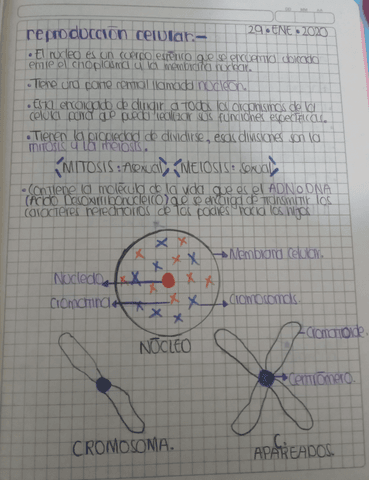 reproducción celular.-
29•ENE•2020
• El núcleo es un cuerpo esférico que se encuentra ubicado
entre el citoplasma y la membrana nuclear.
• Tiene una parte normal llamada nucleón.
• Está encargado de dirigir a todos los organismos de la
célula para que pueda realizar sus funciones específicas.
• Tienen la propiedad de dividirse, esas divisiones son la
mitosis y la meiosis.
MITOSIS: Asexual MEIOSIS: Sexual
• Contiene la molécula de la vida que es el ADN o DNA
(Ácido Desoxirribonucleico) que se encarga de transmitir los
caracteres hereditarios de los padres hacia los hijos
Membrana celular.
Nucleolo
Cromatina
Cromosomas.
NÚCLEO
Cromatoide.
Centrómero.
CROMOSOMA.
C.
APAREADOS.